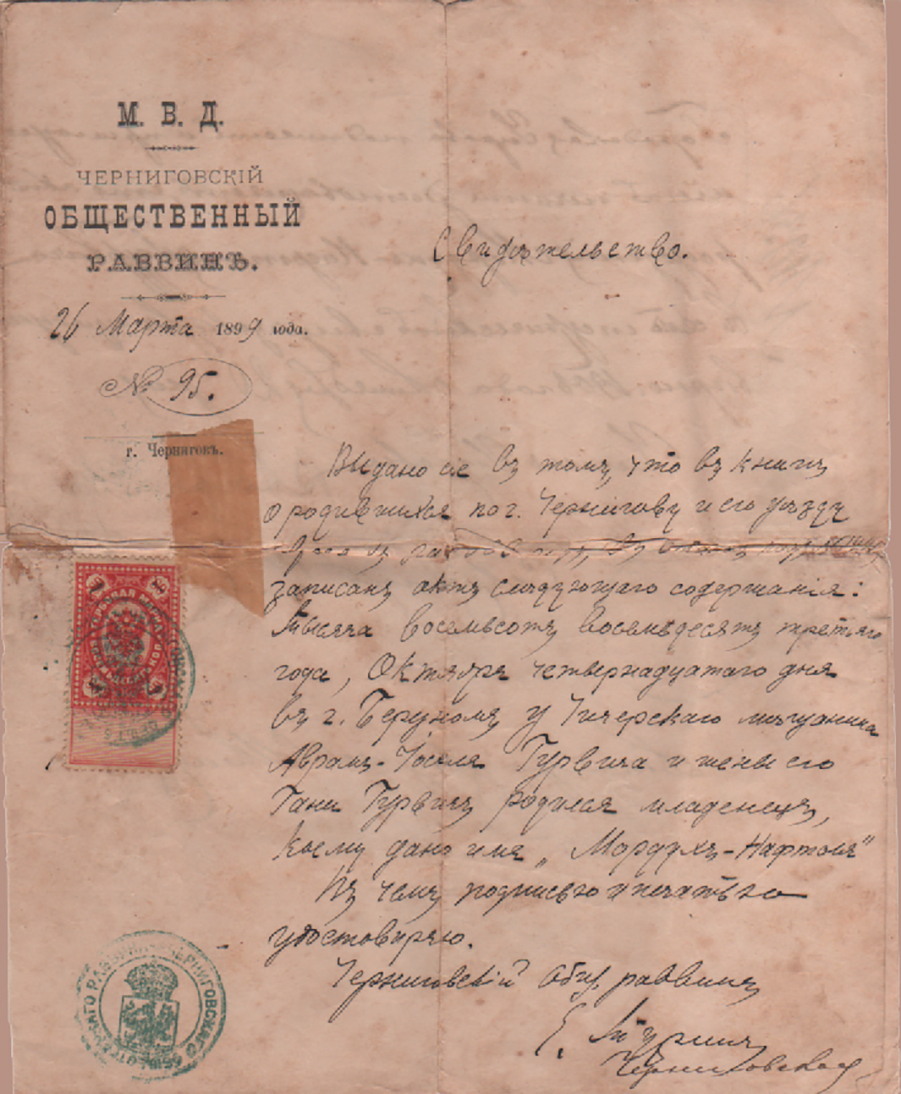 М. В. Д.
ЧЕРНИГОВСКІЙ
ОБЩЕСТВЕННЫЙ
РАВВИНЪ.
26 Марта 1899 года.
№ 95.
г. Черниговъ.
Свидѣтельство.
Выдано сіе въ томъ, что въ книгѣ
о родившихся по г. Чернигову и его уѣзду
записанъ актъ слѣдующаго содержанія:
Тысяча восемьсотъ восемьдесятъ третьяго
года, Октября четвернадцатаго дня
въ г. у Чичерскаго мѣщанина
Авраамъ-Іоселя Гурвича и жены его
Гани Гурвичъ родился младенецъ,
коему дано имя „Мордухъ-Нафтоль"
Въ чемъ подписью и печатью
удостовѣряю.
Черниговскій Общ раввинъ